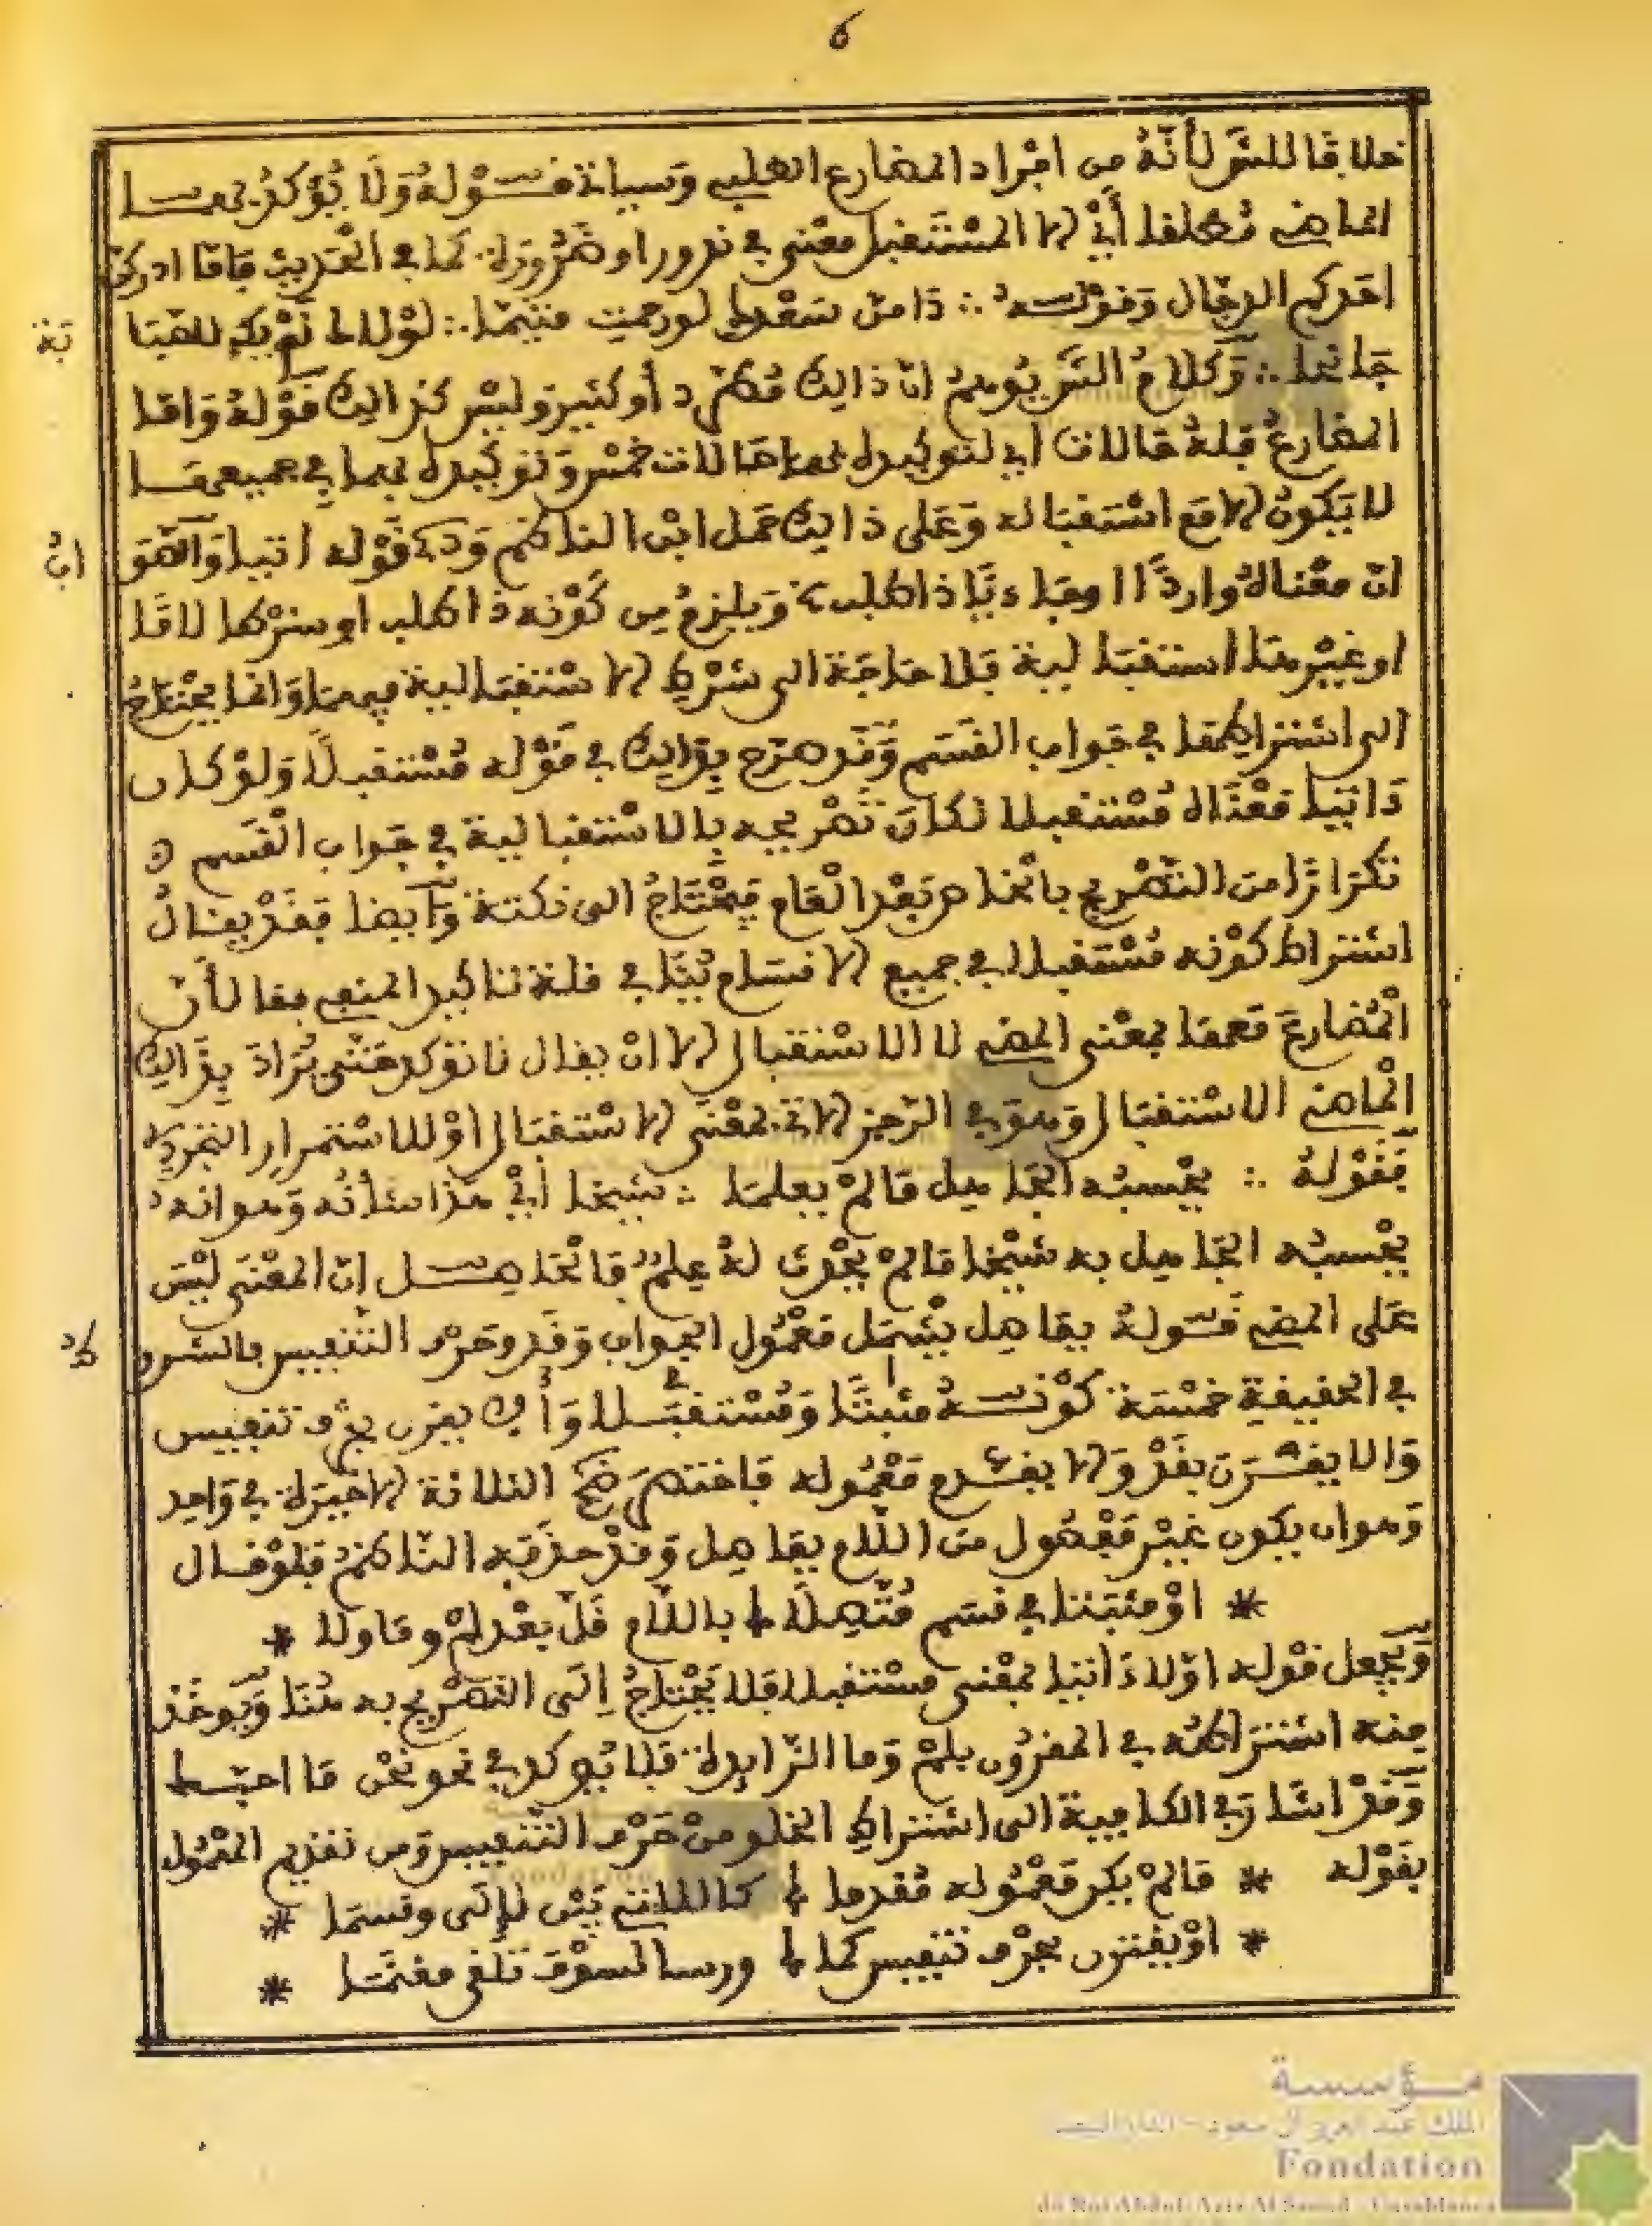 6
خلافا للش لأنه من افراد المضارع الطلبي وسيأتي قوله ولا يؤكد بهما
الماضي مطلقا أي إلا المستقبل معنى في ندور او ضرورة كما في الحديث فاما ادركن
احدكم الدجال وقوله ∴ دامن سعدك لو رحمت متيما ∴ لولاك لم يك للصبا
بة
جانحا ∴ وكلام الش يوهم ان ذالك مطرد أو كثير وليس كذالك قوله واما
المضارع فله حالات اي لتوكيده بهما حالات خمس وتوكيده بهما في جميعها
لا يكون إلا مع استقباله وعلى ذالك حمل ابن الناظم و قوله اتيا والحق
ان
ان معناه واردا اي وجاء تيا ذا طلب ويلزم من كونه ذا طلب او شرطا لاما
او غيرهما استقبالية فلا حاجة الى شرط الاستقبالية فيهما وانما يحتاج
الى اشتراطها في جواب القسم وقد صرح بذالك في قوله مستقبلا ولو كان
ذا تيا معناه مستقبلا لكان تصريحه بالاستقبالية في جواب القسم
تكرارا من التصريح بالخاص بعد العام فيحتاج الى نكتة وايضا فقد يقال
اشتراط كونه مستقبلا في جميع الاقسام ينافي قلة تاكيد المنفي بها لأن
المضارع معها بمعنى المضي لا الاستقبال إلا ان يقال تاتوكد حتى يراد بذالك
الماضي الاستقبال وهو في الرجز الاتي بمعنى الاستقبال او للاستمرار التجردي
فقوله ∴ يحسبه الجاهل ما لم يعلما ∴ شيخا أي هذا شأنه وهو انه
يحسبه الجاهل به شيخا ما لم يحدث له علم فالحاصل ان المعنى ليس
على المضي قوله بفاصل يشمل معمول الجواب وقد وحرف التنفيس فالشرو
ط
في الحقيقة خمسة كونه مثبتا ومستقبلا وألا يقرن بحرف تنفيس
وألا يقرن بقد وألا يقدم معموله فاختصر الثلاثة الاخيرة في واحد
وهو ان يكون غير مفصول من اللام بفاصل وقد حذفه الناظم فلو قال
* او مثبتا في قسم متصلا باللام قل بعد لم وما ولا *
ويجعل قوله اولا ذا تيا بمعنى مستقبلا فلا يحتاج إلى التصريح به هنا ويوخذ
منه اشتراطه في المقرون بلم وما الزايدة فلا يوكد في نحو نحن ما احبط
وقد اشار في الكافية الى اشتراط الخلو من حرف التنفيس ومن تقديم المعمول
بقوله * ما لم يكن معموله مقدما كالللتي بين لإلى وقسما *
* او يقترن بحرف تنفيس كما ورسا لسوف تلفى مغنما *
مؤسسة
الملك عبد العزيز آل سعود - الدار البيضاء
Fondation
du Roi Abdul-Aziz Al Saoud - Casablanca